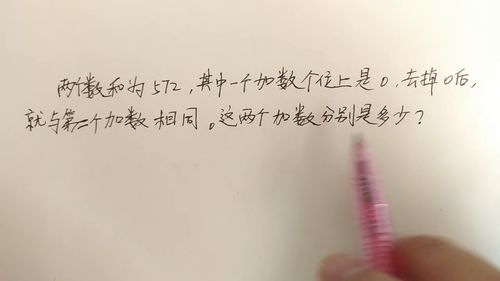 两个数和为572,其中一个加数个位上是0,去掉0后,
就与第二个加数相同。这两个加数分别是多少?